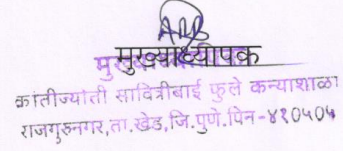 मुख्याध्यापक
क्रांतीज्योती सावित्रीबाई फुले कन्याशाळा
राजगुरुनगर,ता.खेड,जि.पुणे.पिन-४१०५०५